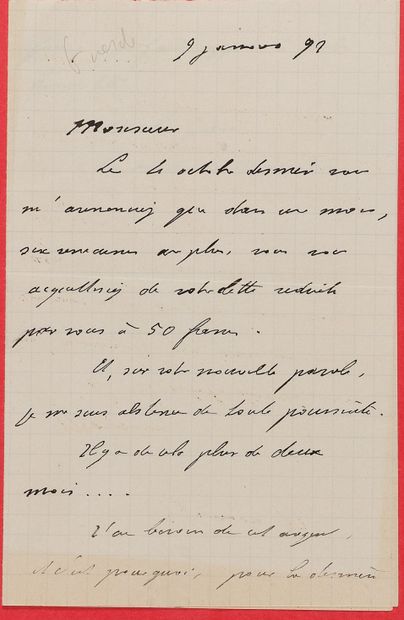 9 janvier 92
Monsieur
Le 4 octobre dernier vous
m'annonciez que dans un mois,
six semaines au plus, vous vous
acquitteriez de votre dette réduite
par vous à 50 francs.
Et, sur votre nouvelle parole,
je me suis abstenu de toute poursuite.
Il y a de cela plus de deux
mois.....
J'ai besoin de cet argent,
et c'est pourquoi, pour la dernière